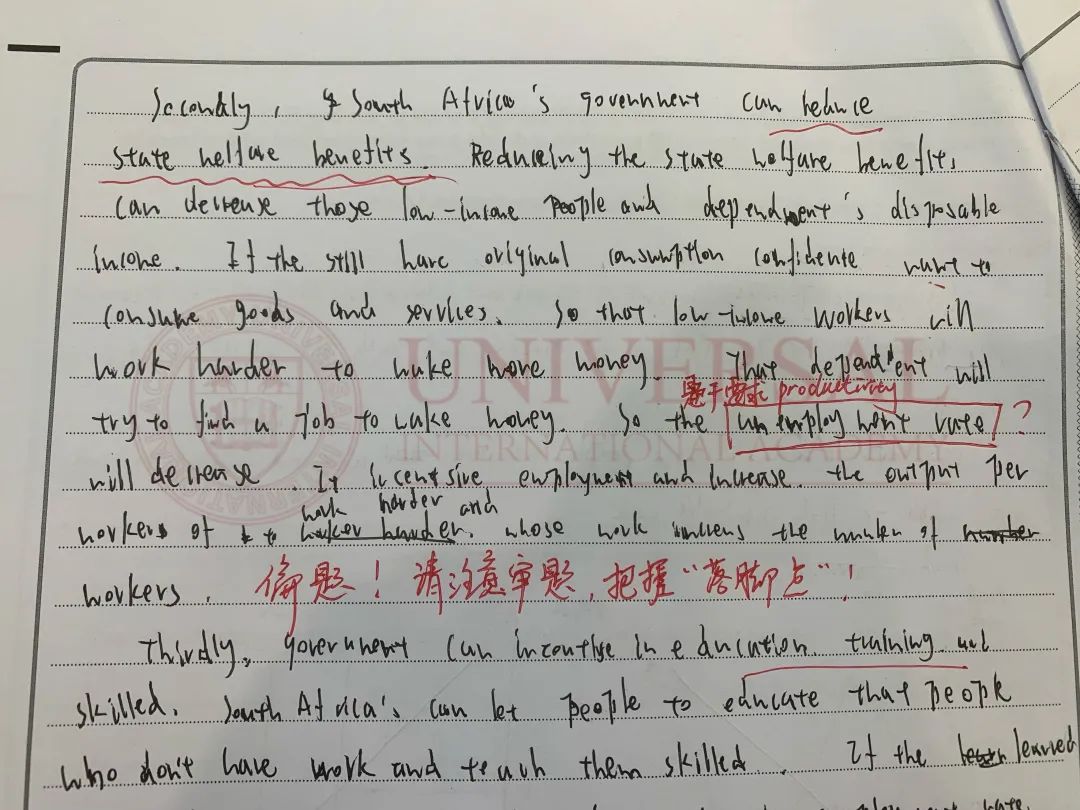 Secondly, South Africa's government can reduce
state welfare benefits. Reduceing the state welfare benefits
can decrease those low-income people and dependent's disposable
income. If the still have original consumption confidente want to
consume goods and services. So that low-income workers will
work harder to make more money. That dependent will
基于需求 productivity
try to find a job to make money. So the unemployment rate ?
will decrease. It incentsive employment and increase the output per
work harder and
workers of to worker harder. whose work the number of
workers. 偏题！请注意审题，把握“落脚点”！
Thirdly, government can incentise in education training and
skilled. South Africa's can let people to educate that people
who don't have work and teach them skilled. If the learned
rate.
UNIVERSAL
INTERNATIONAL ACADEMY